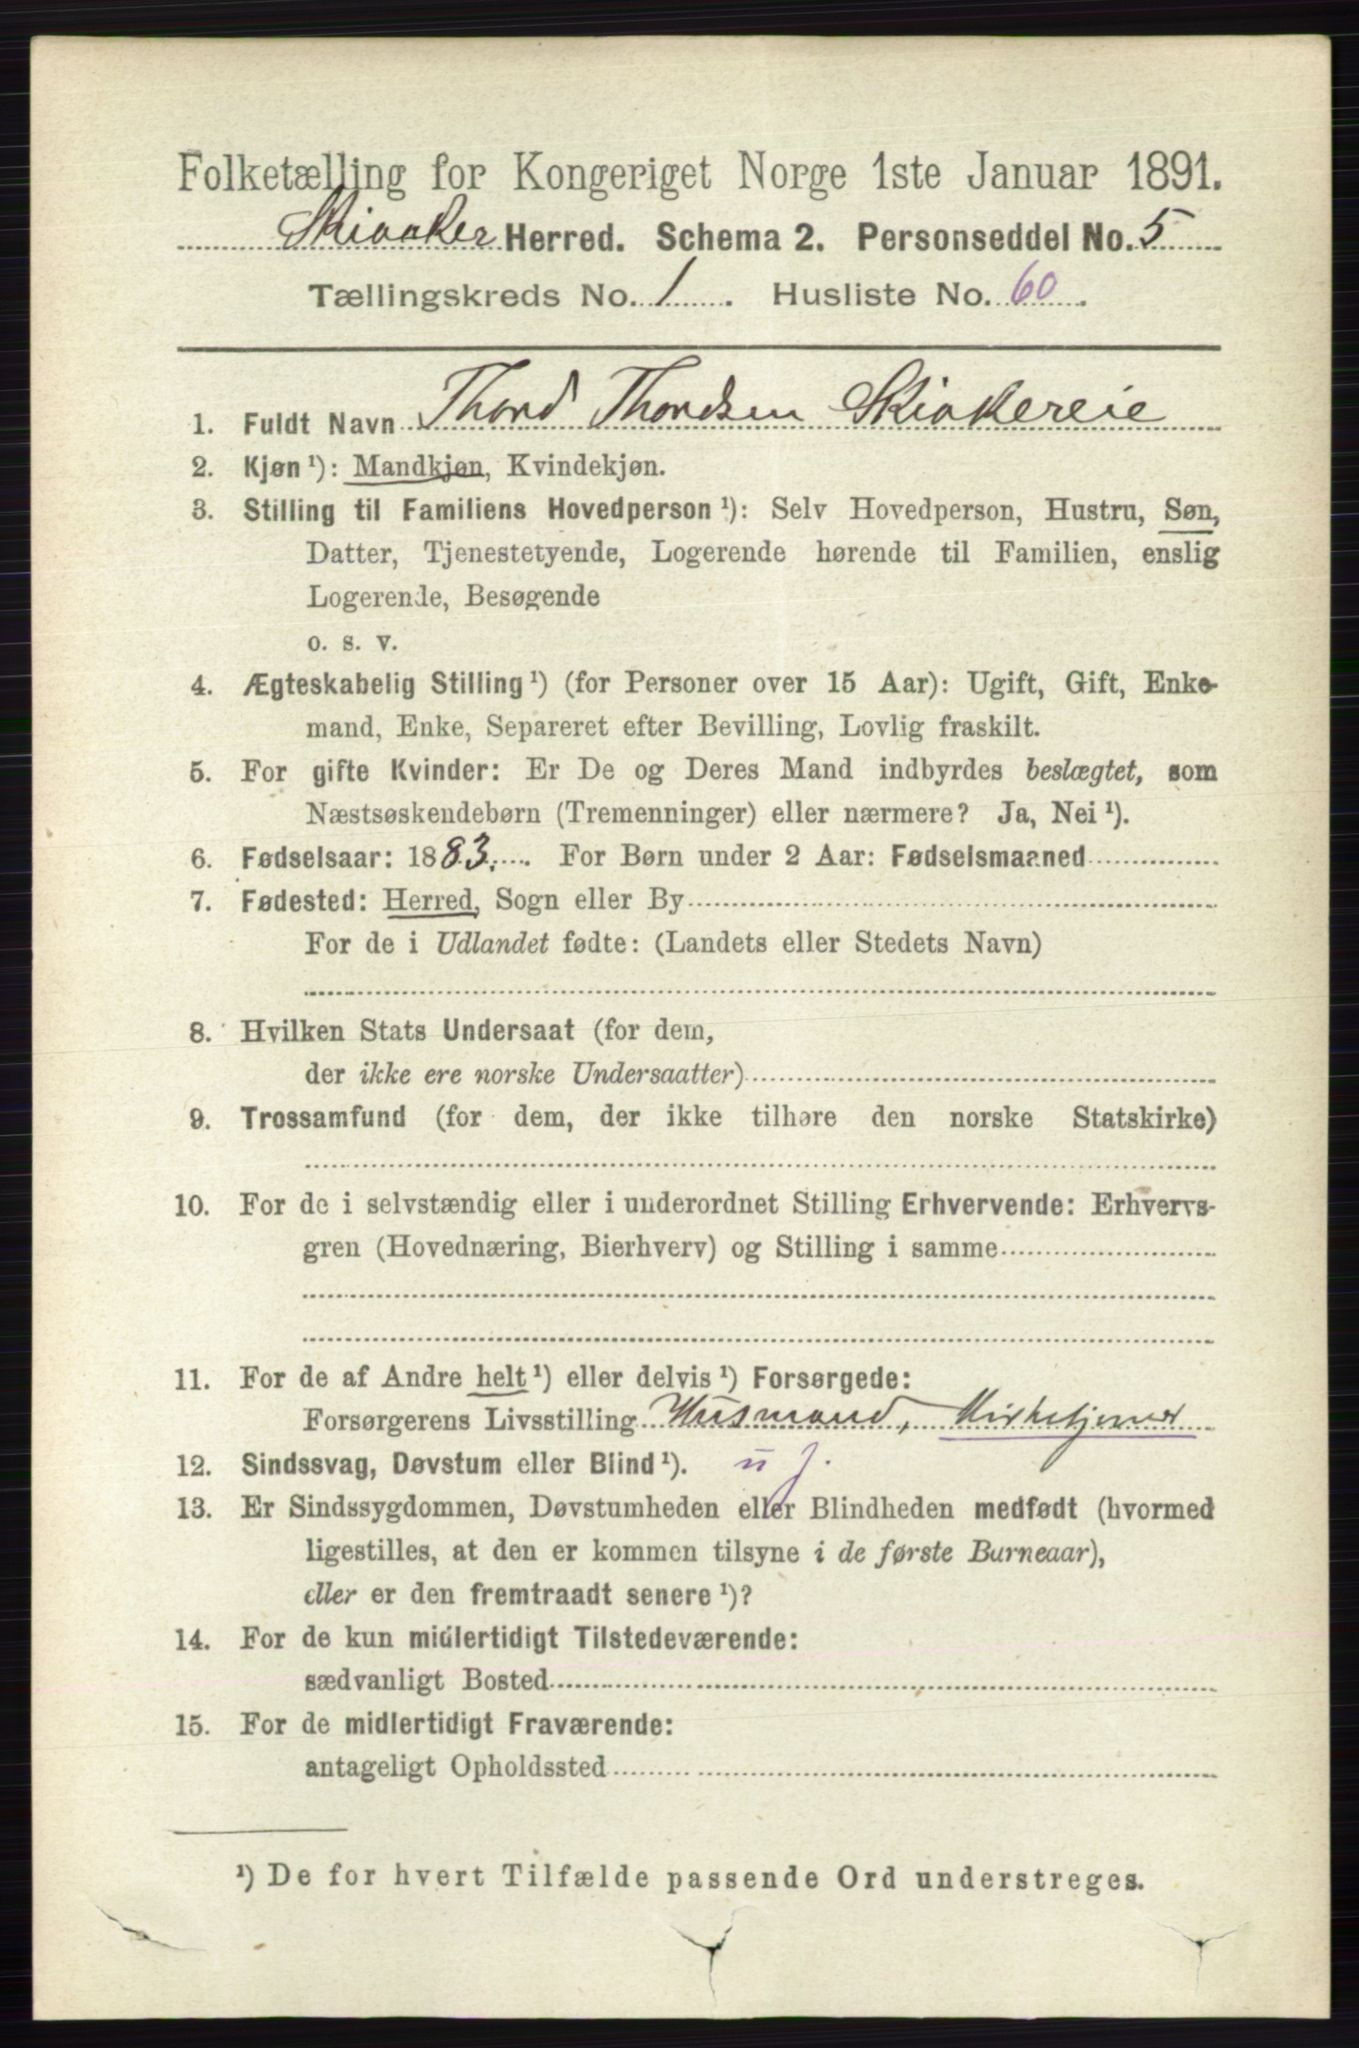 Folketælling for Kongeriget Norge 1ste Januar 1891.
Skiaaker Herred. Schema 2. Personseddel No. 5
Tællingskreds No. 1. Husliste No. 60.
1. Fuldt Navn Thord Thordsen Skiakereie
2. Kjøn¹): Mandkjøn, Kvindekjøn.
3. Stilling til Familiens Hovedperson¹): Selv Hovedperson, Hustru, Søn,
Datter, Tjenestetyende, Logerende hørende til Familien, enslig
Logerende, Besøgende
o. s. v.
4. Ægteskabelig Stilling¹) (for Personer over 15 Aar): Ugift, Gift, Enke-
mand, Enke, Separeret efter Bevilling, Lovlig fraskilt.
5. For gifte Kvinder: Er De og Deres Mand indbyrdes beslægtet, som
Næstsøskendebørn (Tremenninger) eller nærmere? Ja, Nei¹).
6. Fødselsaar: 1883. For Børn under 2 Aar: Fødselsmaaned
7. Fødested: Herred, Sogn eller By
For de i Udlandet fødte: (Landets eller Stedets Navn)
8. Hvilken Stats Undersaat (for dem,
der ikke ere norske Undersaatter)
9. Trossamfund (for dem, der ikke tilhøre den norske Statskirke)
10. For de i selvstændig eller i underordnet Stilling Erhvervende: Erhvervs-
gren (Hovednæring, Bierhverv) og Stilling i samme
11. For de af Andre helt¹) eller delvis¹) Forsørgede:
Forsørgerens Livsstilling Husmand, Kirketjener
12. Sindssvag, Døvstum eller Blind¹).
13. Er Sindssygdommen, Døvstumheden eller Blindheden medfødt (hvormed
ligestilles, at den er kommen tilsyne i de første Barneaar),
eller er den fremtraadt senere¹)?
14. For de kun midlertidigt Tilstedeværende:
sædvanligt Bosted
15. For de midlertidigt Fraværende:
antageligt Opholdssted
¹) De for hvert Tilfælde passende Ord understreges.